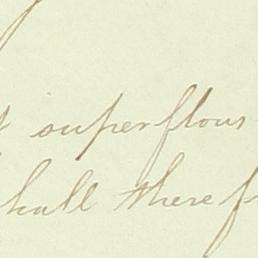 superflous
hall there f